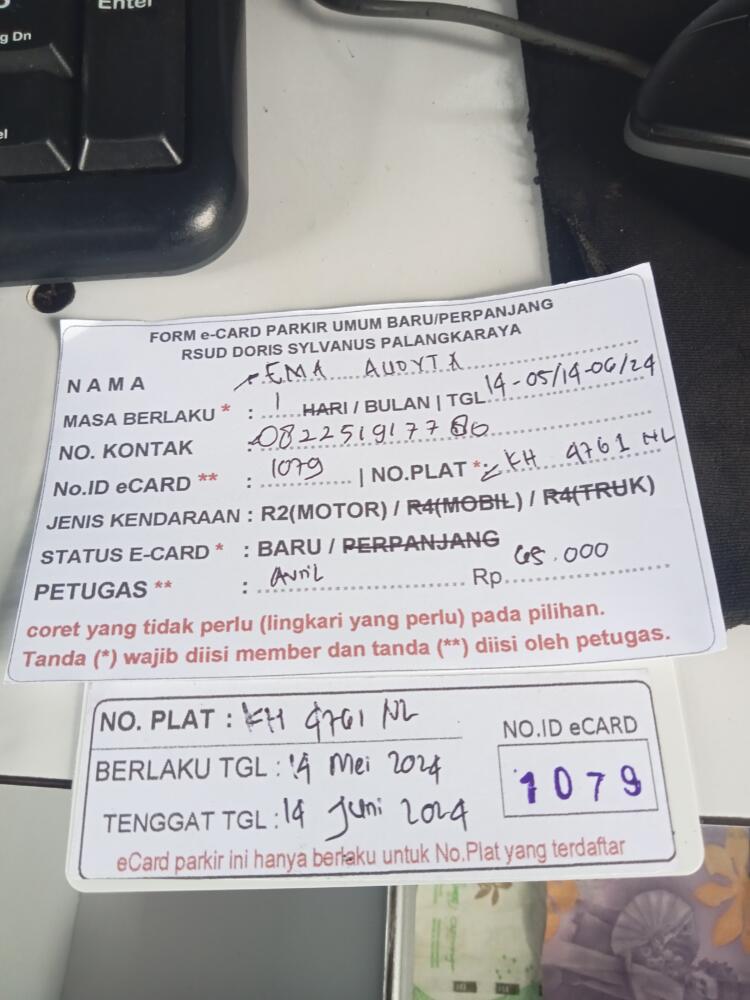 Enter
g Dn
el
FORM e-CARD PARKIR UMUM BARU/PERPANJANG
RSUD DORIS SYLVANUS PALANGKARAYA
NAMA EMA AUDYTA
MASA BERLAKU * : 1 HARI / BULAN | TGL 14-05/14-06/24
NO. KONTAK : 082251917780
No.ID eCARD ** : 1079 | NO.PLAT * : KH 4761 NL
JENIS KENDARAAN : R2(MOTOR) / R4(MOBIL) / R4(TRUK)
STATUS E-CARD * : BARU / PERPANJANG
PETUGAS ** : Avril Rp 65.000
coret yang tidak perlu (lingkari yang perlu) pada pilihan.
Tanda (*) wajib diisi member dan tanda (**) diisi oleh petugas.
NO. PLAT : KH 4761 NL
NO.ID eCARD
BERLAKU TGL : 14 Mei 2024
1079
TENGGAT TGL : 14 Juni 2024
eCard parkir ini hanya berlaku untuk No.Plat yang terdaftar